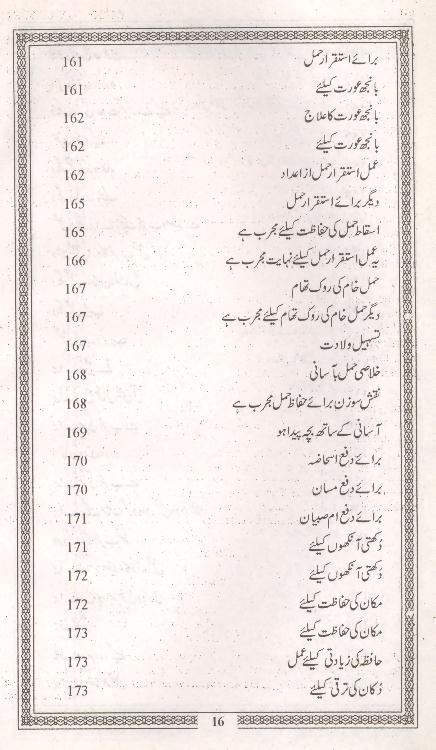 برائے استقرار حمل 161
بانجھ عورت کیلئے 161
بانجھ عورت کا علاج 162
بانجھ عورت کیلئے 162
عمل استقرار حمل از اعداد 162
دیگر برائے استقرار حمل 165
اسقاط حمل کی حفاظت کیلئے مجرب ہے 165
یہ عمل استقرار حمل کیلئے نہایت مجرب ہے 166
حمل خام کی روک تھام 167
دیگر حمل خام کی روک تھام کیلئے مجرب ہے 167
تسہیل ولادت 167
خلاصی حمل بآسانی 168
نقش سوزن برائے حفاظ حمل مجرب ہے 168
آسانی کے ساتھ بچہ پیدا ہو 169
برائے دفع اسحاضہ 170
برائے دفع مسان 170
برائے دفع ام صبیان 171
دُکھتی آنکھوں کیلئے 171
دُکھتی آنکھوں کیلئے 172
مکان کی حفاظت کیلئے 172
مکان کی حفاظت کیلئے 173
حافظہ کی زیادتی کیلئے عمل 173
دُکان کی ترقی کیلئے 173
16